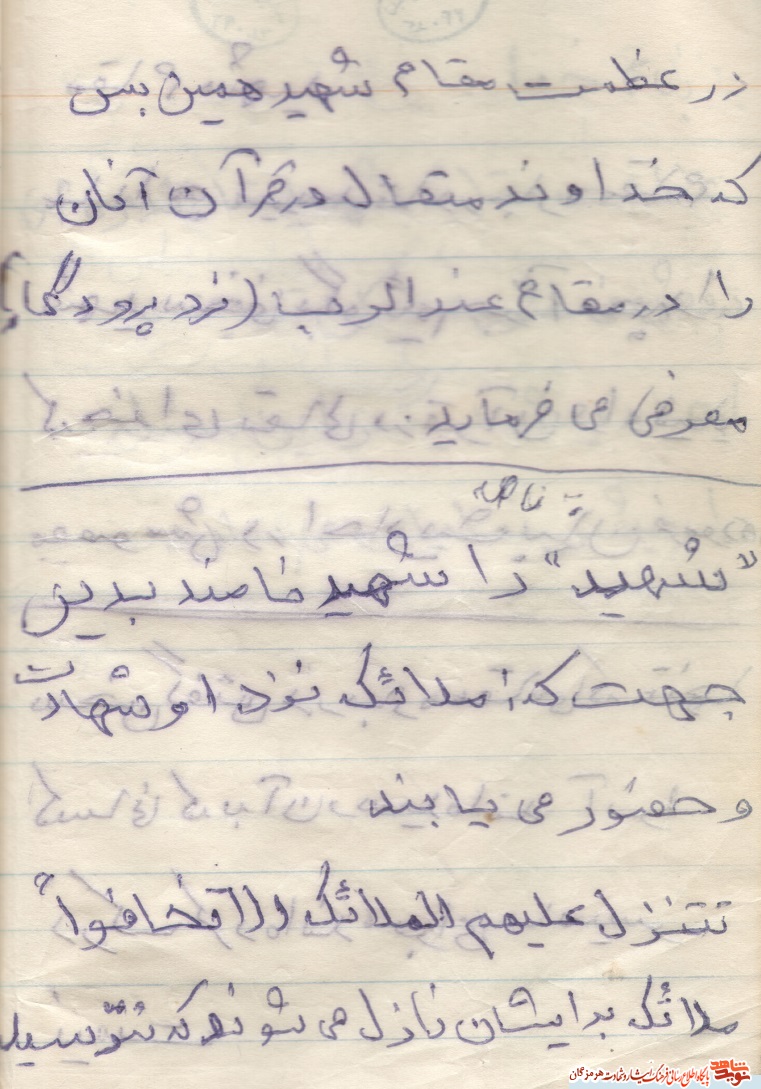 در عظمت مقام شهید همین بس
که خداوند متعال در قرآن آنان
را در مقام عند الرب (نزد پرودگار)
معرفی می فرماید.
"شهید" را شهید نامند بدین
جهت که: ملائک نزد او شهادت
و حضور می یابند
تتنزل علیهم الملائک الا تخافوا"
ملائک برایشان نازل می شوند که نترسید
نوید شاهد
پایگاه اطلاع رسانی فرهنگ ایثار و شهادت هرمزگان